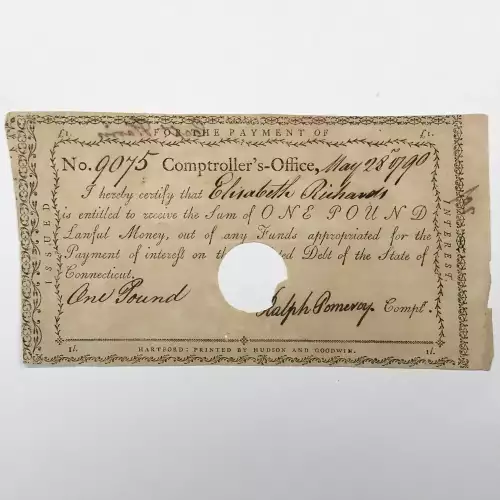 £1. FOR THE PAYMENT OF £1.
No. 9075 Comptroller's-Office, May 28th 1790
I hereby certify that Elisabeth Richards
is entitled to receive the Sum of ONE POUND
Lawful Money, out of any Funds appropriated for the
Payment of interest on th ed Debt of the State of
Connecticut.
One Pound Ralph Pomeroy Compt.
1l. HARTFORD: PRINTED BY HUDSON AND GOODWIN. 1l.
ISSUED
INTEREST